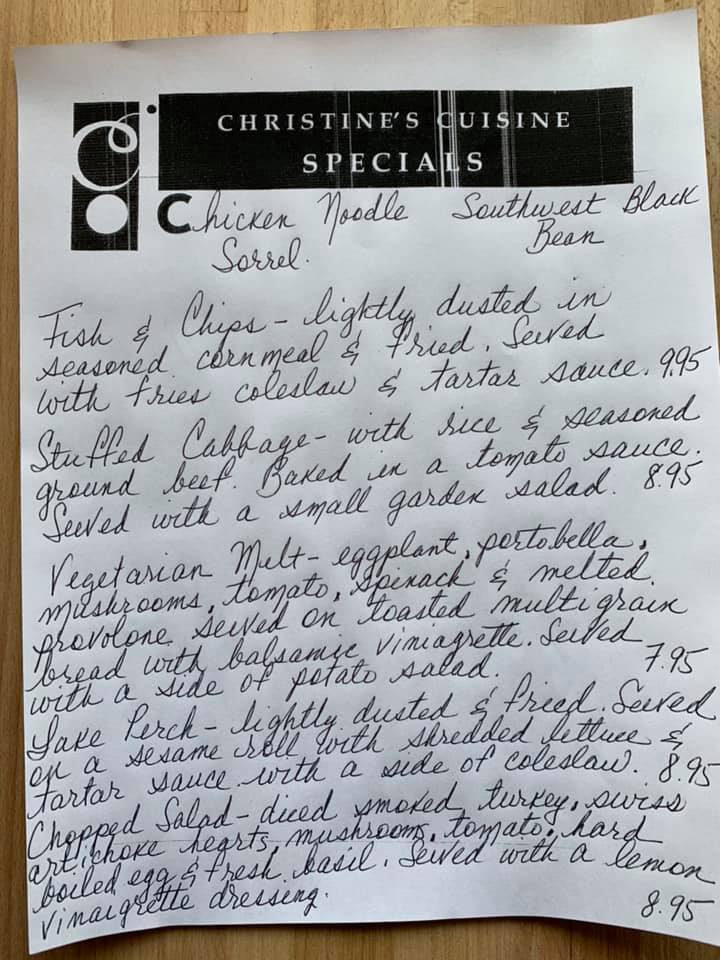 CHRISTINE'S CUISINE
SPECIALS
Chicken Noodle Southwest Black
Sorrel. Bean
Fish & Chips - lightly dusted in
seasoned cornmeal & fried. Served
with fries coleslaw & tartar sauce. 9.95
Stuffed Cabbage - with rice & seasoned
ground beef. Baked in a tomato sauce.
Served with a small garden salad. 8.95
Vegetarian Melt - eggplant, portobella,
mushrooms, tomato, spinach & melted
provolone served on toasted multigrain
bread with balsamic viniagrette. Served
with a side of potato salad. 7.95
Lake Perch - lightly dusted & fried. Served
on a sesame roll with shredded lettuce &
tartar sauce with a side of coleslaw. 8.95
Chopped Salad - diced smoked turkey, swiss
artichoke hearts, mushrooms, tomato, hard
boiled egg & fresh basil. Served with a lemon
vinaigrette dressing. 8.95